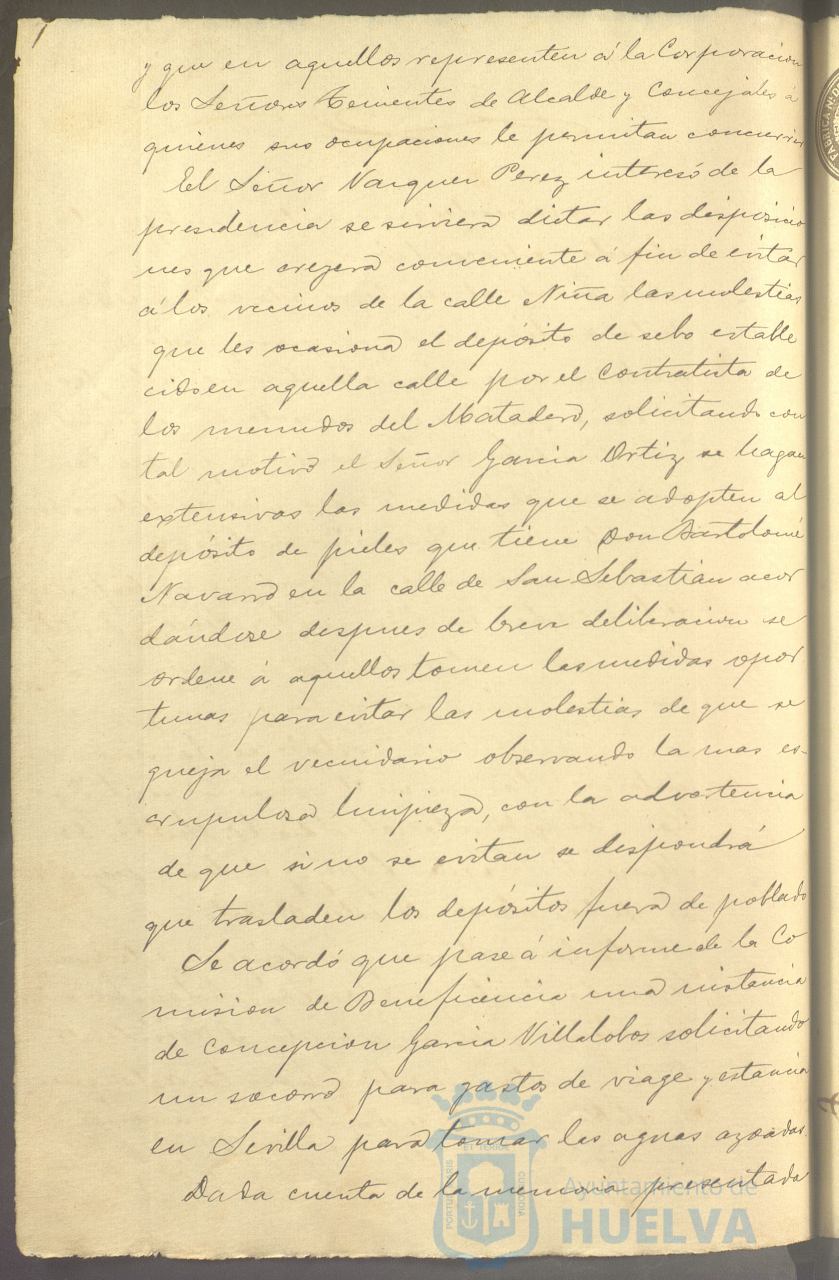 y que en aquellos representen á la Corporacion
los Señores Tenientes de Alcalde y Concejales á
quienes sus ocupaciones le permitan concurrir
El Señor Vazquez Perez interesó de la
presidencia se sirviera dictar las disposicio
nes que creyera conveniente á fin de evitar
á los vecinos de la calle Niña las molestias
que les ocasiona el depósito de sebo estable
cido en aquella calle por el Contratista de
los menudos del Matadero, solicitando con
tal motivo el Señor Garcia Ortiz se hagan
extensivas las medidas que se adopten al
depósito de pieles que tiene Don Bartolomé
Navarro en la calle de San Sebastian acor
dándose despues de breve deliberacion se
ordene á aquellos tomen las medidas opor
tunas para evitar las molestias de que se
queja el vecindario observando la mas es-
crupulosa limpieza, con la advertencia
de que si no se evitan se dispondrá
que trasladen los depósitos fuera de poblado
Se acordó que pase á informe de la Co
mision de Beneficencia una instancia
de Concepcion Garcia Villalobos solicitando
un socorro para gastos de viage y estancia
en Sevilla para tomar las aguas azoadas.
Dada cuenta de la memoria presentada
Ayuntamiento de
HUELVA